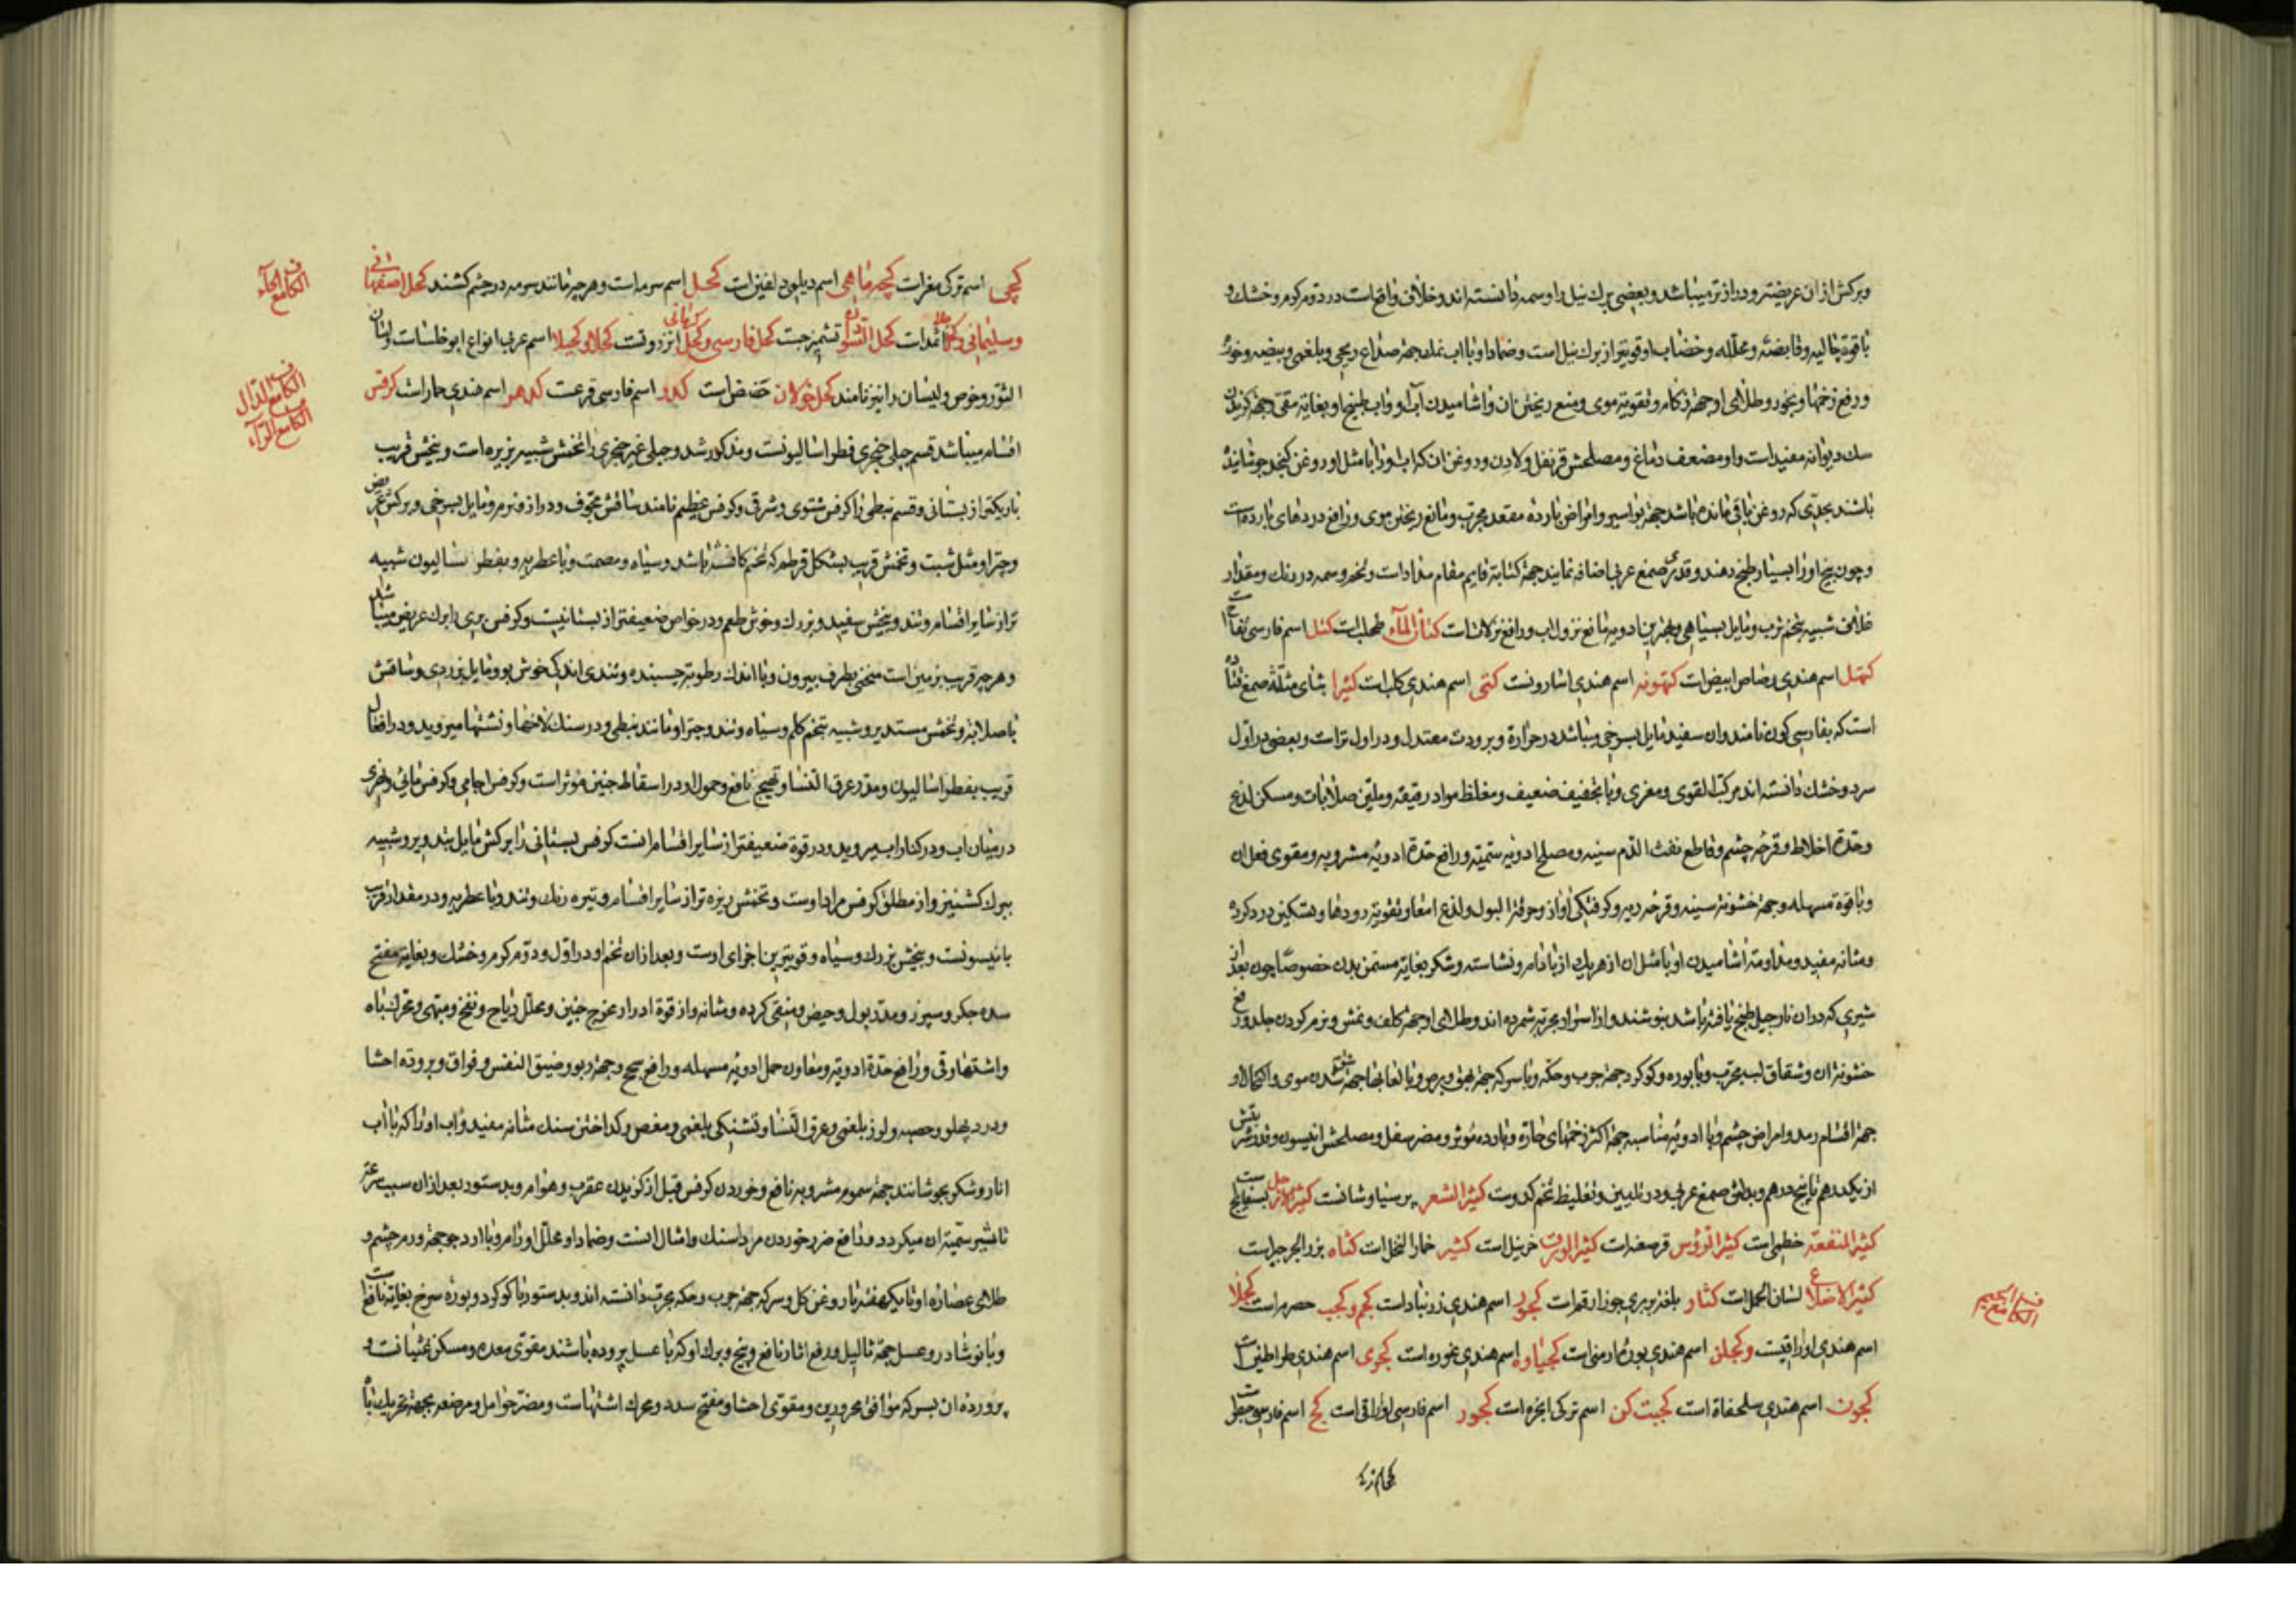 وبرکش ازان عریضتر و درازتر میباشد و بعضی برك نیل را وسمه دانسته اند و خلاف واقع است در دوم کرم و خشك و
با قوة جالیه و قابضه و محلله و خضاب او قویتر از برك نیل است و ضماد او با اب نمك جهة صداع ریحی و بلغمی و بیضه و خوذه
و رفع زخمها و بخور و طلای او جهة زکام و تقویة موی و منع ریختن ان و اشامیدن آب او و اب طبیخ او بغایة مقی و جهة کزیدن
سك دیوانه مفید است و او مضعف دماغ و مصلحش قرنفل و لادن و روغن ان که اب او را با مثل او روغن کنجد جوشانیده
باشند بحدی که روغن باقی مانده باشد جهة بواسیر و امراض بارده مقعد مجرب و مانع ریختن موی و رافع دردهای بارده است
و چون بیخ او را بسیار طبخ دهند و قدری صمغ عربی اضافه نمایند جهة کتابة قایم مقام مداد است و تخم وسمه در رنك و مقدار
فلفل شبیه بتخم ترب و مایل بسیاهی و بهترین ادویه مانع نزول اب و رافع نزلات است کتان الماء طحلب است کتل اسم فارسی تفاح است
کتهل اسم هندی رصاص ابیض است کتهونه اسم هندی اشاروونست کتی اسم هندی کلب است کثیرا بثای مثلثه صمغ قتاد
است که بفارسی کون نامند و ان سفید مایل بسرخی میباشد در حرارة و برودت معتدل و در اول تر است و بعضی در اول
سرد و خشك دانسته اند مرکب القوی و مغری و با تجفیف ضعیف و مغلظ مواد رقیقه و ملین صلابات و مسکن لذع
و حدة اخلاط و قرحه چشم و قاطع نفث الدم سینه و مصلح ادویه سمیه و رافع حدة ادویه مشروبه و مقوی فعل ان
و با قوة مسهله و جهة خشونة سینه و قرحه ریه و کرفتکی اواز و حرقة البول و لذع امعا و تقویة رودها و تسکین درد کرده
و مثانه مفید و مداومة اشامیدن او با مثل ان از هریك از بادام و نشاسته و شکر بغایة مسمن بدن خصوصا چون بعد از ان
شیری که در ان نارجیل طبخ یافته باشد بنوشند و از اسرار مجربه شمرده اند و طلای او جهة کلف و نمش و نرم کردن جلد و رفع
خشونة ان و شقاق لب مجرب و با بوره و کوکرد جهة جرب و حکه و با سرکه جهة بهق و برص و با لعابها جهة شق شدن موی و اکتحال او
جهة اقسام رمد و امراض چشم و با ادویه مناسبه جهة اکثر زخمهای حاره و بارده موثر و مضر سفل و مصلحش انیسون و قدر شربتش
از یکدرهم تا پنج درهم و بدلش صمغ عربی و در تلیین و تغلیظ تخم کدوست کثیر الشعر پرسیاوشانست کثیر الارجل بسفایج است
کثیر المنفعة خطمی است کثیر الرؤس قرصعنه است کثیر الورق خربل است کثیر خمار النخل است کثاه بزر الجرجیر است
کثیر الاضلاع لسان الحمل است کثار بلغة بربری جوز ارقم است کجور اسم هندی زرنباد است کجم و کجب حصرم است کجلا
اسم هندی اوراقیت و کجلن اسم هندی بوره ارمنی است کجیاوه اسم هندی غوره است کجری اسم هندی طراطین است
کجون اسم هندی سلحفاة است کجیت کن اسم ترکی ابخره است کجور اسم فارسی اوراقی است کج اسم فارسی
الکاف مع الجیم
کجی اسم ترکی مغر است کجه ماهی اسم دیلمی دلفین است کحل اسم سرمه است و هرچه مانند سرمه در چشم کشند کحل اصفهانی
و سلیمانی و جلا اثمد است کحل السودان تشمیزجست کحل فارسی و کحل کرمانی انزروتست کحلا و کحیلا اسم عربی انواع ابوخلساست و لسان
الثور و خوص و لیسان را نیز نامند کحل خولان حضض است کدو اسم فارسی قرعست کدهر اسم هندی حمار است کرفس
اقسام میباشد قسم جبلی حجری فطراسالیونست و مذکور شد و جبلی غیر حجری را تخمش شبیه بزیره است و بیخش قریب
باریکتر از بستانی و قسم نبطی را کرفس شتوی و شرقی و کرفس عظیم نامند ساقش مجوف و دراز و نرم و مایل بسرخی و برکش عریض
و چتر او مثل شبت و تخمش قریب بشکل قرطم که تخم کافشه باشد و سیاه و مصمت و با عطریه و بفطراسالیون شبیه
تر از سایر اقسام و تند و بیخش سفید و بزرك و خوش طعم و در خواص ضعیفتر از بستانیست و کرفس بری را برك عریض میباشد
و هرچه قریب بزمین است منحنی بطرف بیرون و با اندك رطوبة چسبنده و تندی اندك خوش بو و مایل بزردی و ساقش
با صلابة و تخمش مستدیر و شبیه بتخم کلم و سیاه و تند و چتر او مانند نبطی و در سنك لاخها و تشتها میروید و در افعال
قریب بفطراسالیون و مدر عرق النسا و تهیج نافع و حمول او در اسقاط جنین موثر است و کرفس اجامی و کرفس مائی و نهری
در میان اب و در کنار اب میروید و در قوة ضعیفتر از سایر اقسام انست کرفس بستانی را برکش مایل بتدویر و شبیه
ببرك کشنیز و از مطلق کرفس مراد اوست و تخمش ریزه تر از سایر اقسام و تیره رنك و تند و با عطریه و در مقدار قریب
بانیسونست و بیخش بزرك و سیاه و قویترین اجزای اوست و بعد از ان تخم او در اول و دوم کرم و خشك و بغایة مفتح
سده جکر و سپرز و مدر بول و حیض و منقی کرده و مثانه و از قوة ادرار مخرج جنین و محلل ریاح و نفخ و مبهی و محرك باه
و اشتها و قی و رافع حدة ادویه و معاون حمل ادویه مسهله و رافع سحج و جهة ربو و ضیق النفس و فواق و بروده احشا
و درد پهلو و حصبه و لرز بلغمی و عرق النسا و تشنکی بلغمی و مغص و کداختن سنك مثانه مفید و اب او را که با اب
انار و شکر بجوشانند جهة سموم مشروبه نافع و خوردن کرفس قبل از کزیدن عقرب و هوام و بدستور بعد از ان سبب سرعة
تاثیر سمیة ان میکردد و دافع ضرر خوردن مرداسنك و امثال انست و ضماد او محلل اورام و با ارد جو جهة ورم چشم و
طلای عصاره او تا یکهفته با روغن کل و سرکه جهة جرب و حکه مجرب دانسته اند و بدستور با کوکرد و بوره سرخ بغایة نافعست
و با نوشادر و عسل جهة ثالیل و رفع اثار نافع و بیخ و برك او که با عسل پرورده باشند مقوی معده و مسکن غثیانست و
پرورده ان بسرکه موافق محرورین و مقوی احشا و مفتح سدد و محرك اشتهاست و مضر حوامل و مرضعه بجهة تحریك باه
الکاف مع الحاء
الکاف مع الدال
الکاف مع الراء